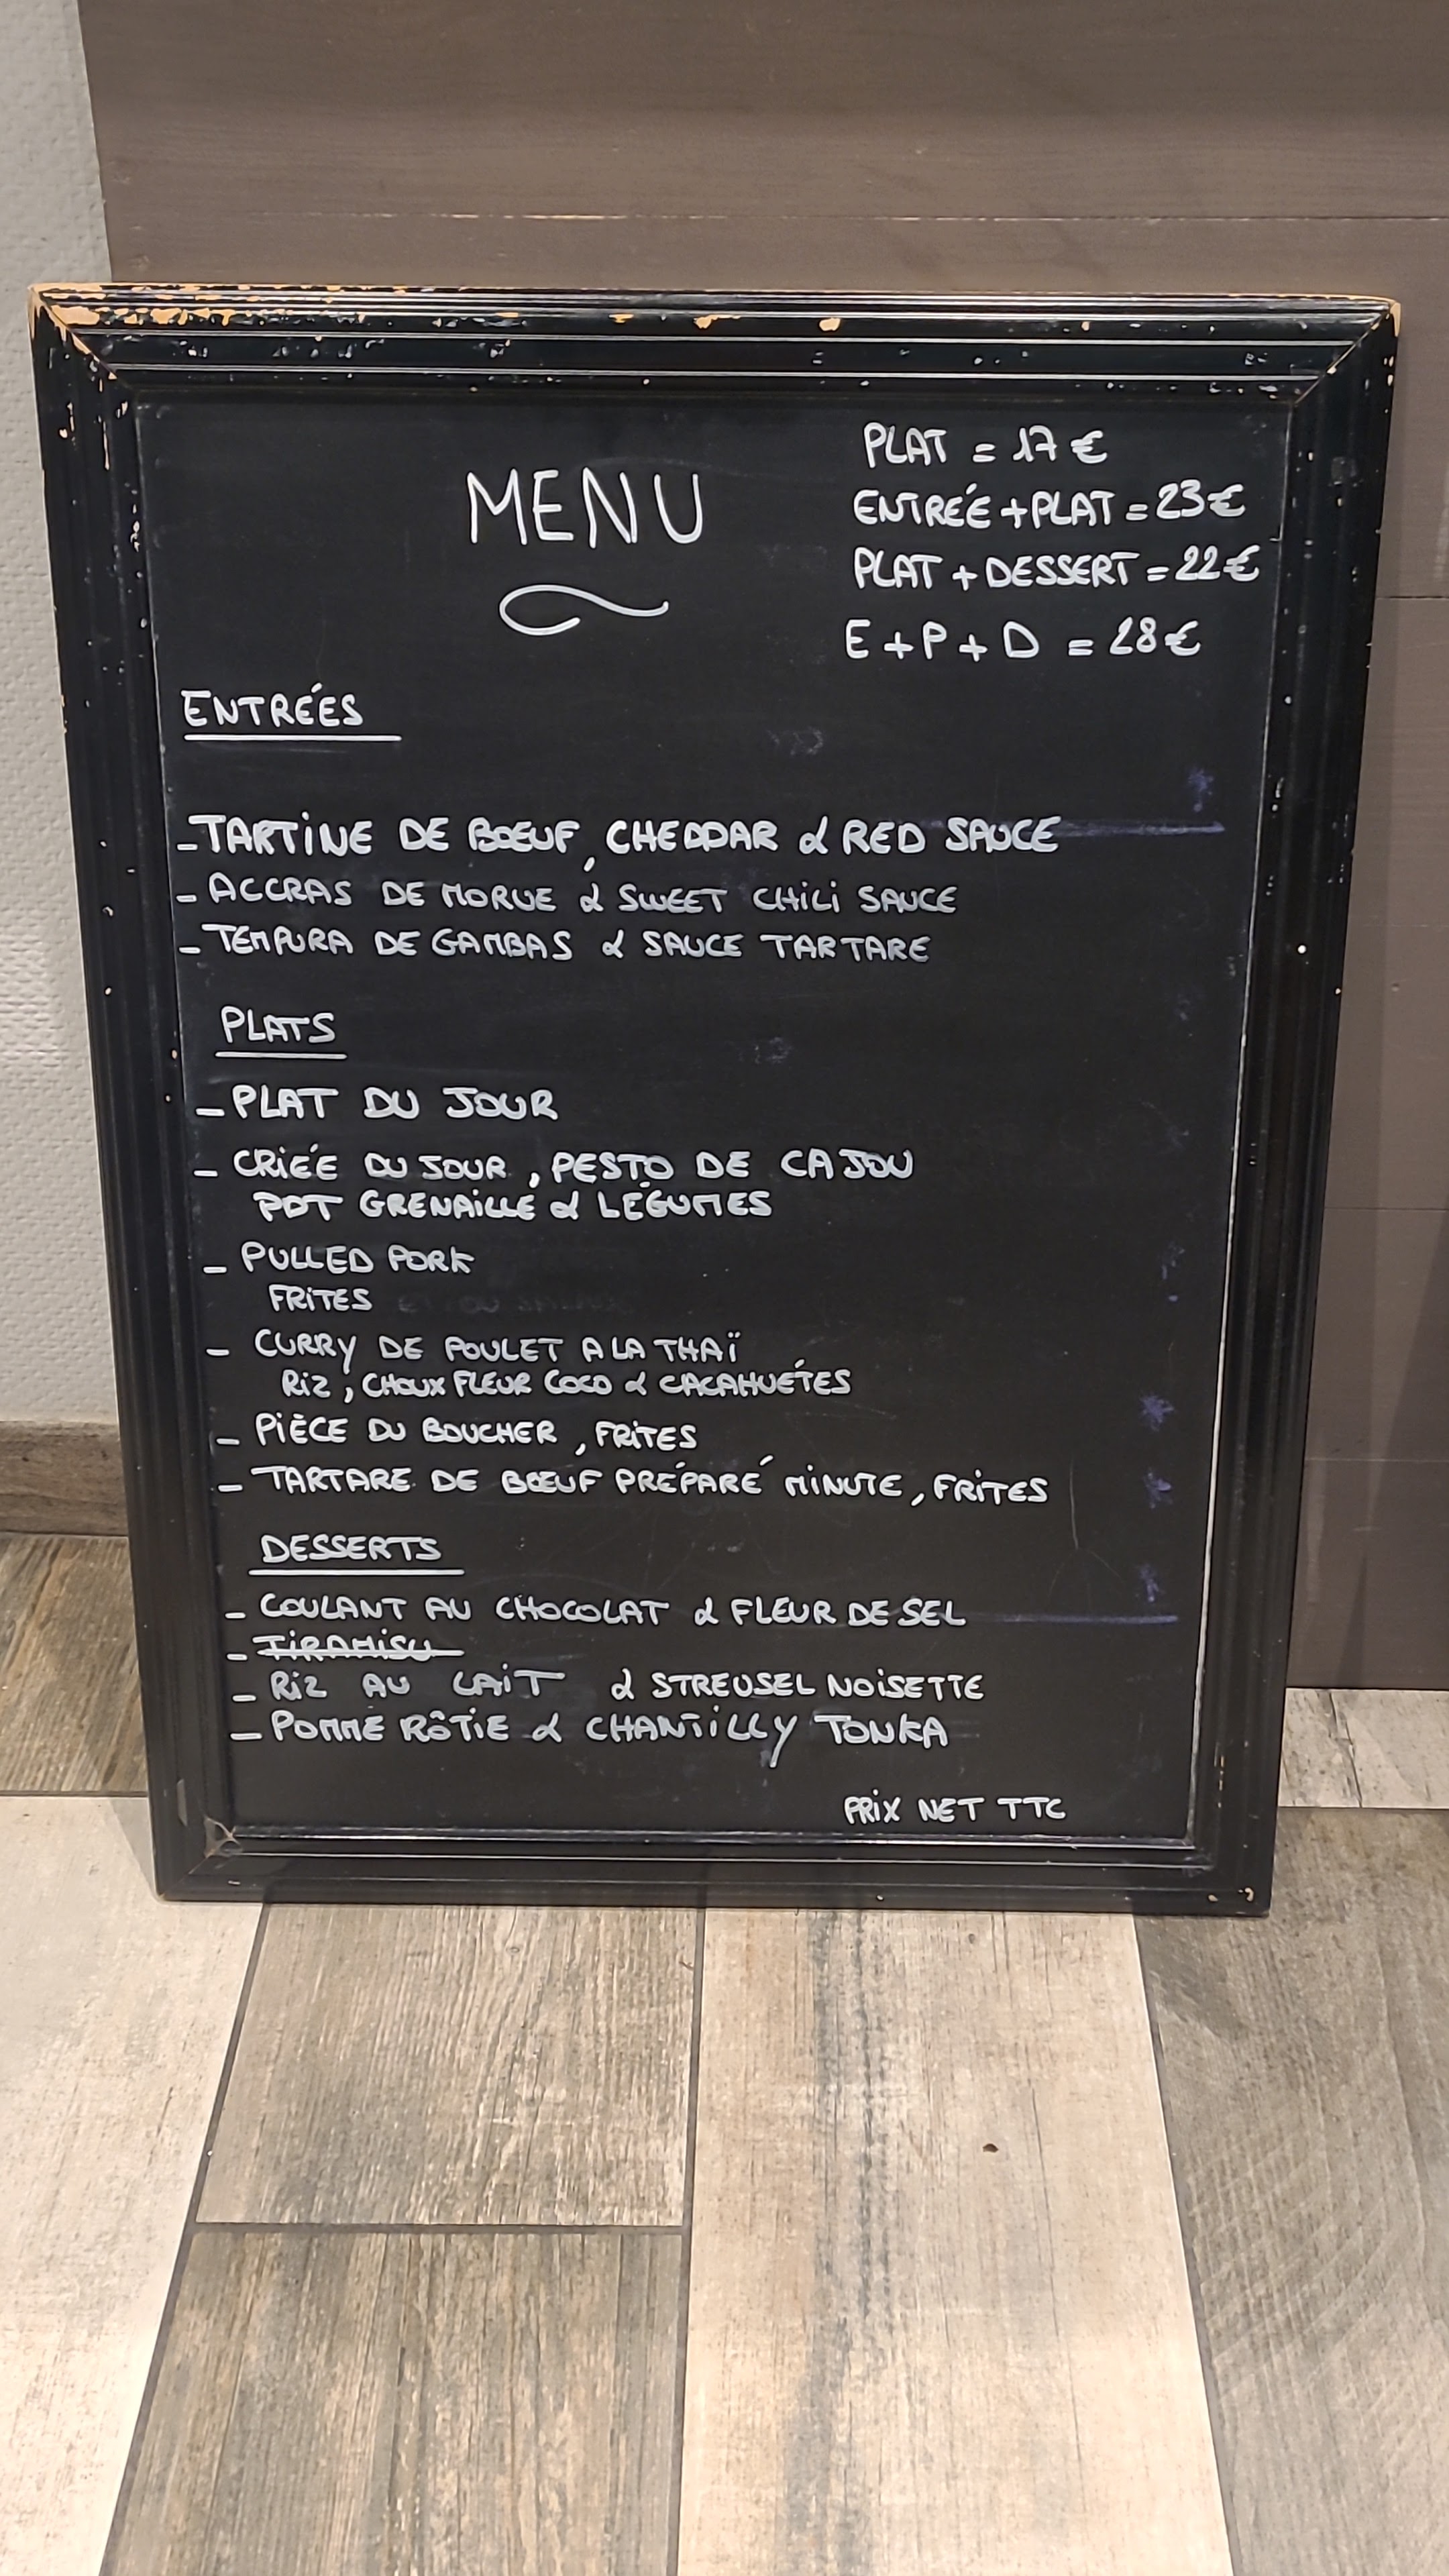 MENU
PLAT = 17 €
ENTRÉE + PLAT = 23 €
PLAT + DESSERT = 22 €
E + P + D = 28 €
ENTRÉES
- TARTINE DE BŒUF, CHEDDAR & RED SAUCE
- ACCRAS DE MORUE & SWEET CHILI SAUCE
- TEMPURA DE GAMBAS & SAUCE TARTARE
PLATS
- PLAT DU JOUR
- CRIÉE DU JOUR, PESTO DE CAJOU
PDT GRENAILLE & LÉGUMES
- PULLED PORK
FRITES
- CURRY DE POULET A LA THAÏ
RIZ, CHOUX FLEUR COCO & CACAHUÉTES
- PIÈCE DU BOUCHER, FRITES
- TARTARE DE BŒUF PRÉPARÉ MINUTE, FRITES
DESSERTS
- COULANT AU CHOCOLAT & FLEUR DE SEL
- TIRAMISU
- RIZ AU LAIT & STREUSEL NOISETTE
- POMME RÔTIE & CHANTILLY TONKA
PRIX NET TTC